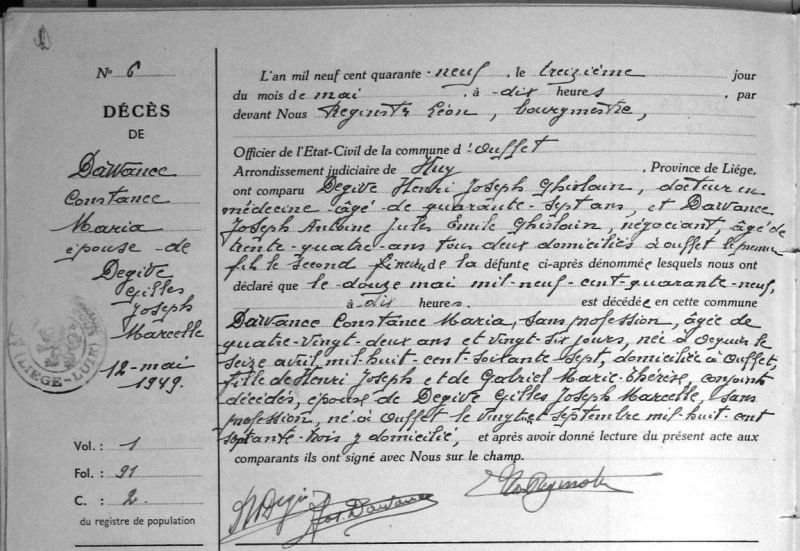 No 6
DÉCÈS
DE
Dawance
Constance
Maria
épouse de
Degive
Gilles
Joseph
Marcelle
12-mai
1949.
LIÉGE-LUIK
Vol. : 1
Fol. : 91
C. : 2.
du registre de population
L'an mil neuf cent quarante-neuf, le treizième jour
du mois de mai, à dix heures, par
devant Nous Léon, bourgmestre,
Officier de l'Etat-Civil de la commune d'Ouffet
Arrondissement judiciaire de Huy, Province de Liége,
ont comparu Degive Henri Joseph Ghislain, docteur en
médecine âgé de quarante-sept ans, et Dawance
Joseph Antoine Jules Emile Ghislain, négociant, âgé de
trente-quatre-ans tous deux domiciliés à Ouffet le premier
fils le second de la défunte ci-après dénommée lesquels nous ont
déclaré que le douze mai mil-neuf-cent-quarante-neuf,
à dix heures. est décédée en cette commune
Dawance Constance Maria, sans profession, âgée de
quatre-vingt-deux ans et vingt-six jours, née à le
seize avril mil-huit-cent-soixante sept, domiciliée à Ouffet,
fille de Henri Joseph et de Gabriel Marie-Thérèse, conjoints
décédés, épouse de Degive Gilles Joseph Marcelle, sans
profession, né à Ouffet le septembre mil-huit-cent
septante-trois y domicilié, et après avoir donné lecture du présent acte aux
comparants ils ont signé avec Nous sur le champ.
Jos. Dawance